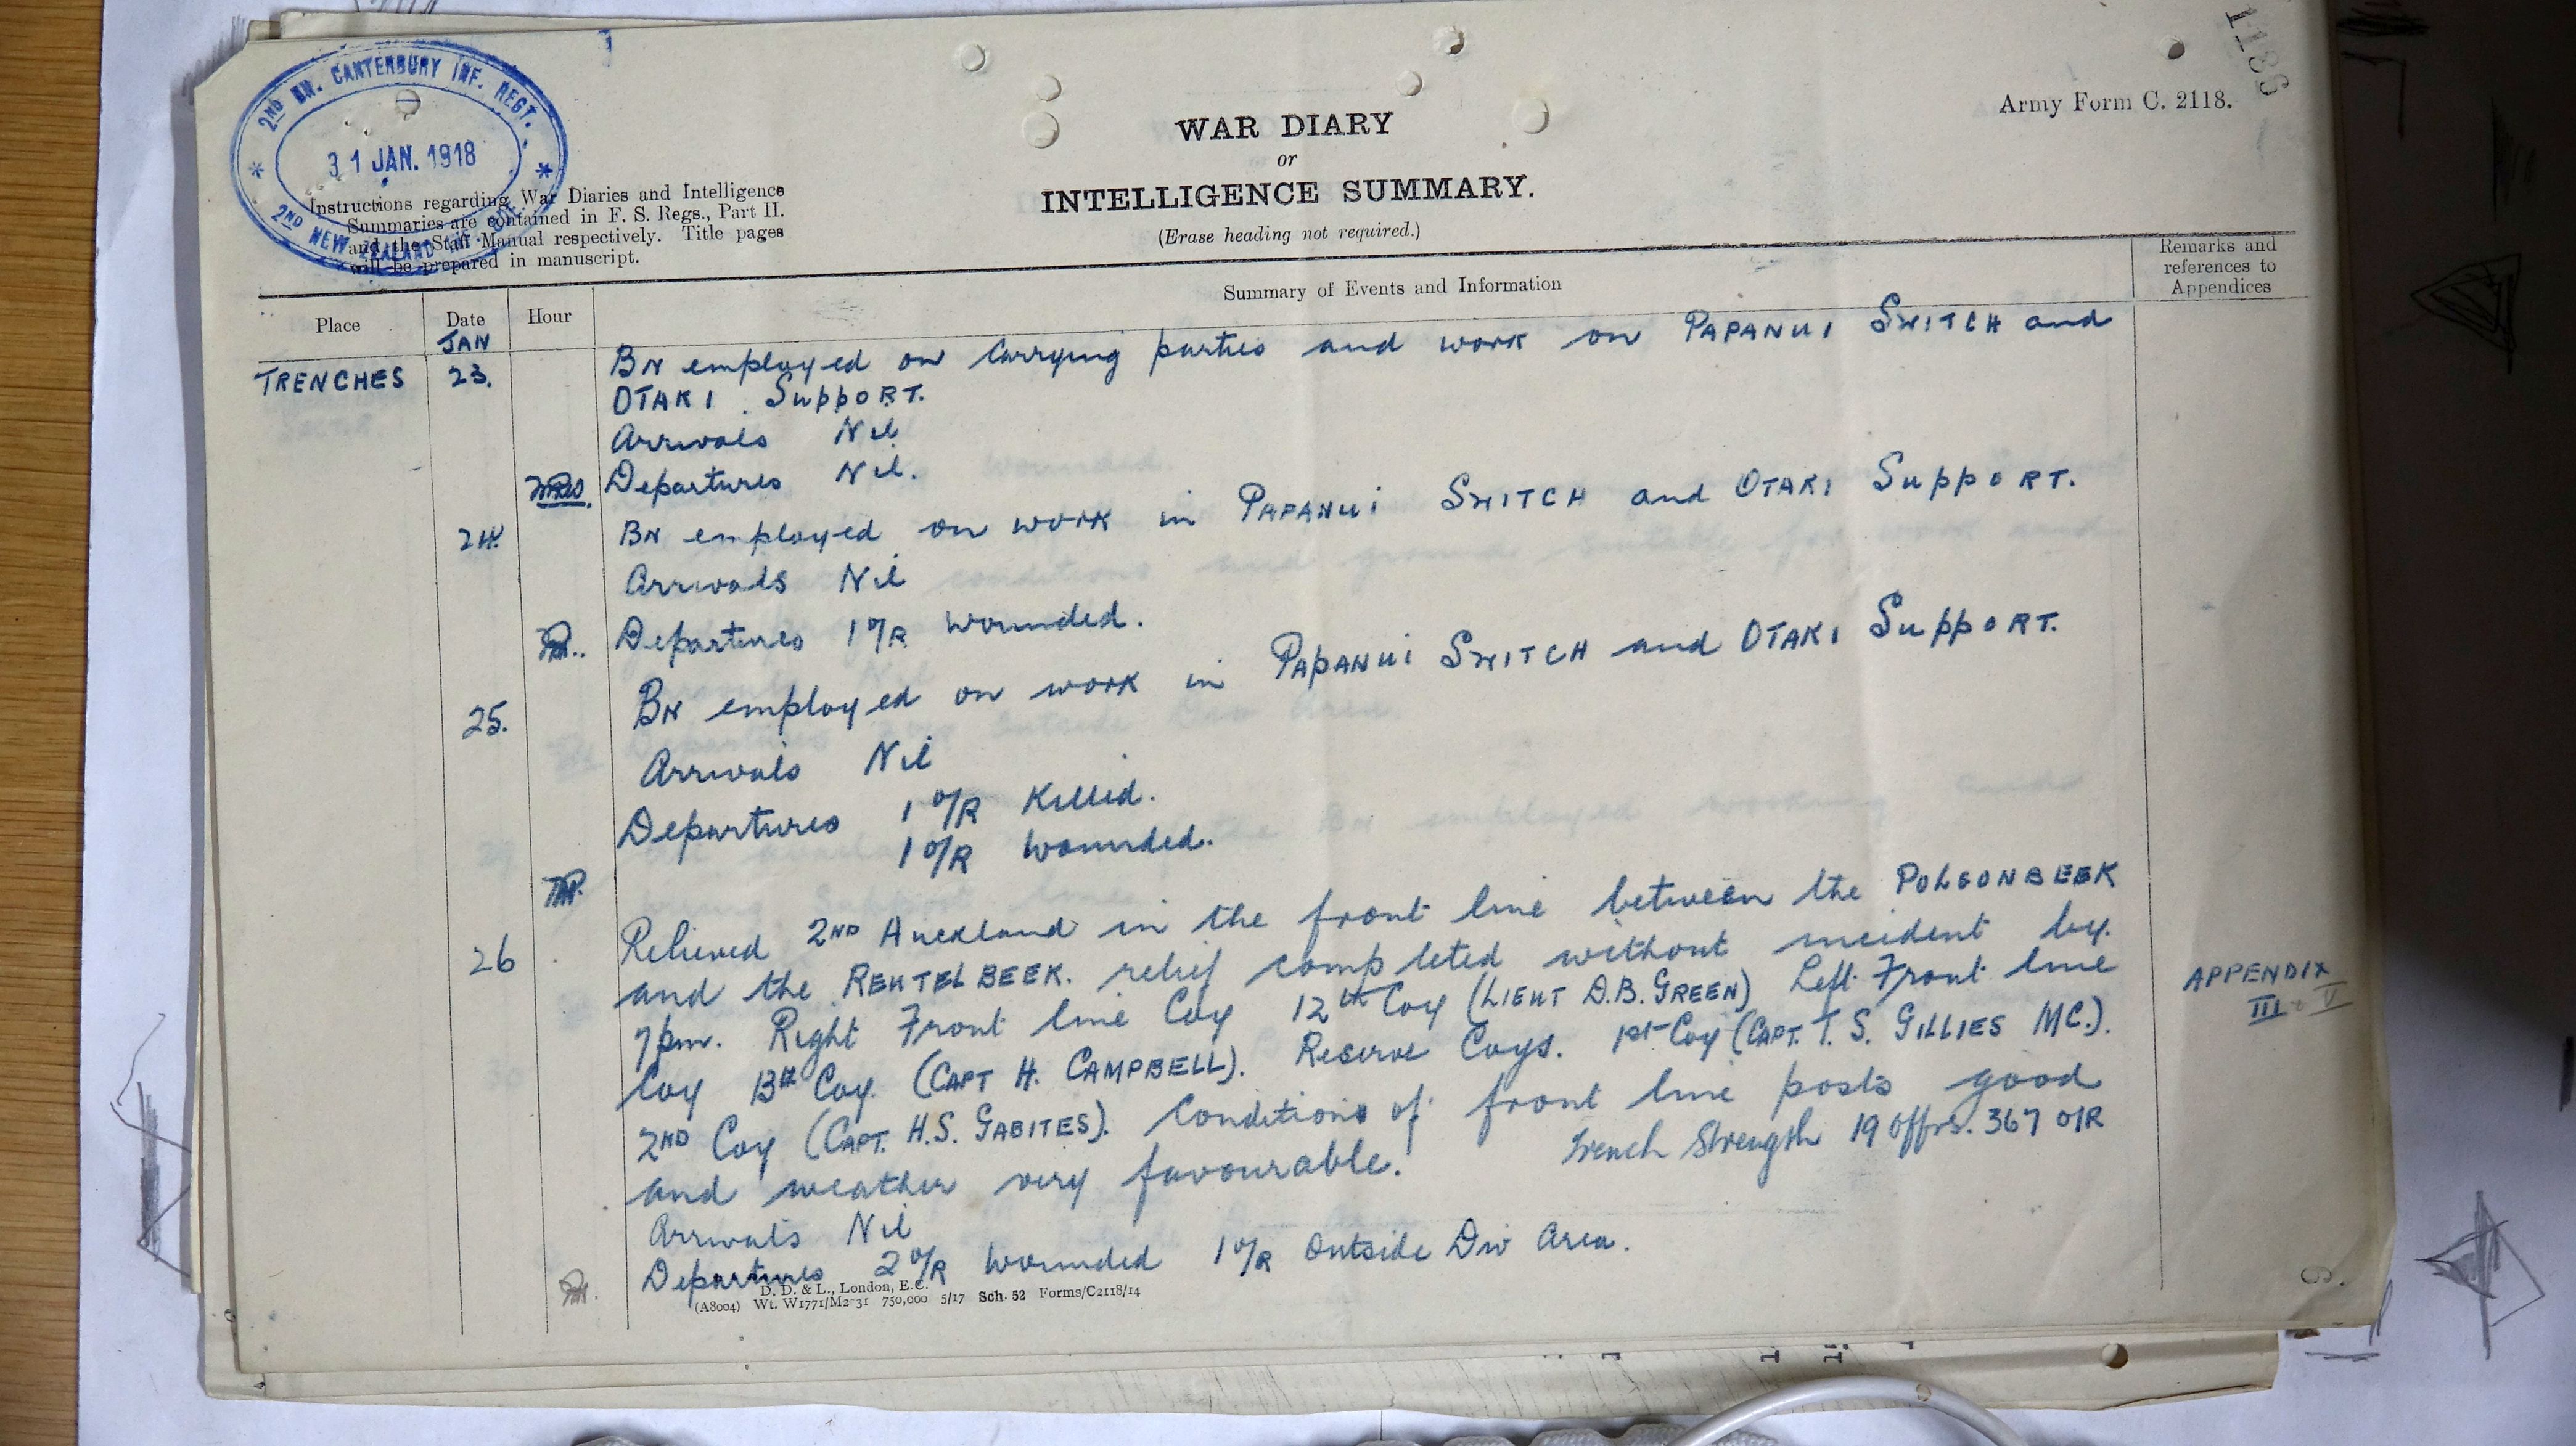 2ND BN. CANTERBURY INF. REGT.
31 JAN. 1918
2ND NEW ZEALAND INF. BDE.
1186
Army Form C. 2118.
WAR DIARY
or
INTELLIGENCE SUMMARY.
(Erase heading not required.)
Instructions regarding War Diaries and Intelligence
Summaries are contained in F. S. Regs., Part II.
and the Staff Manual respectively. Title pages
will be prepared in manuscript.
Place Date Hour Summary of Events and Information Remarks and references to Appendices
JAN
TRENCHES 23. BN employed on carrying parties and work on PAPANUI SWITCH and
OTAKI SuppORT.
Arrivals Nil
Departures Nil.
24. BN employed on work in PAPANUI SWITCH and OTAKI SuppORT.
Arrivals Nil
Departures 1 O/R wounded.
25. BN employed on work in PAPANUI SWITCH and OTAKI SuppORT.
Arrivals Nil
Departures 1 O/R Killed.
1 O/R wounded.
26 Relieved 2ND Auckland in the front line between the POLGONBEEK
and the REUTELBEEK. relief completed without incident by
7pm. Right Front line Coy 12th Coy (LIEUT D.B. GREEN) Left Front line
Coy 13th Coy. (CAPT H. CAMPBELL). Reserve Coys. 1st Coy (CAPT. T. S. GILLIES MC.).
2ND Coy (CAPT. H.S. GABITES). Conditions of front line posts good
and weather very favourable. Trench Strength 19 Offrs. 367 O/R
APPENDIX
III & V
Arrivals Nil
Departures 2 O/R wounded 1 O/R Outside Div Area.
D. D. & L., London, E.C.
(A8004) Wt. W1771/M2 31 750,000 5/17 Sch. 52 Forms/C2118/14